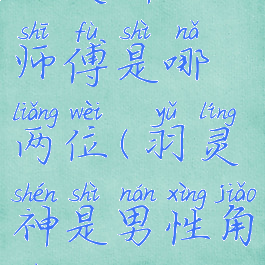 shī fù shì nǎ
师傅是哪
liǎng wèi yǔ líng
两位(羽灵
shén shì nán xìng jiǎo
神是男性角